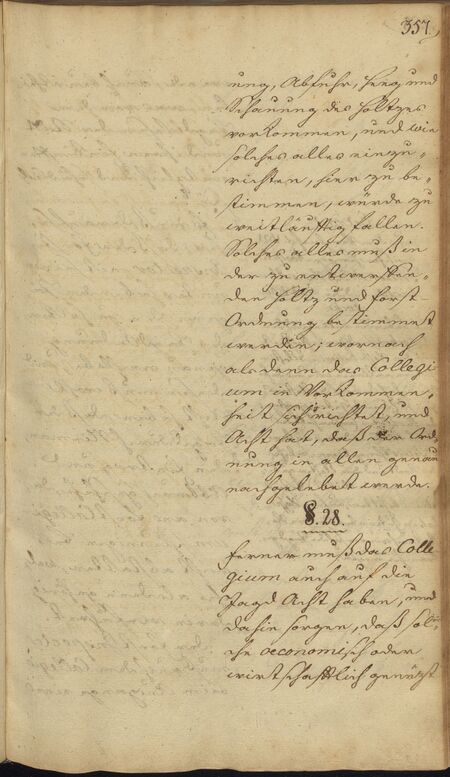 357.
ung, Abfuhr, Heeg und
Schauung des Holtzes
vorkommen, und wie
solches alles einzu„
richten, hier zu be„
stimmen, würde zu
weitläufftig fallen.
Solches alles muß in
der zu entwerffen„
den Holtz und Forst-
Ordnung bestimmet
werden; wornach
als denn das Collegi
um in Vorkommen„
heit sich richtet, und
Acht hat, daß der Ord
nung in allen genau
nachgelebet werde.
§. 28.
Ferner muß das Colle
gium auch auf die
Jagd Acht haben, und
dahin sorgen, daß sol„
che oeconomisch oder
wirtschafftlich genützt